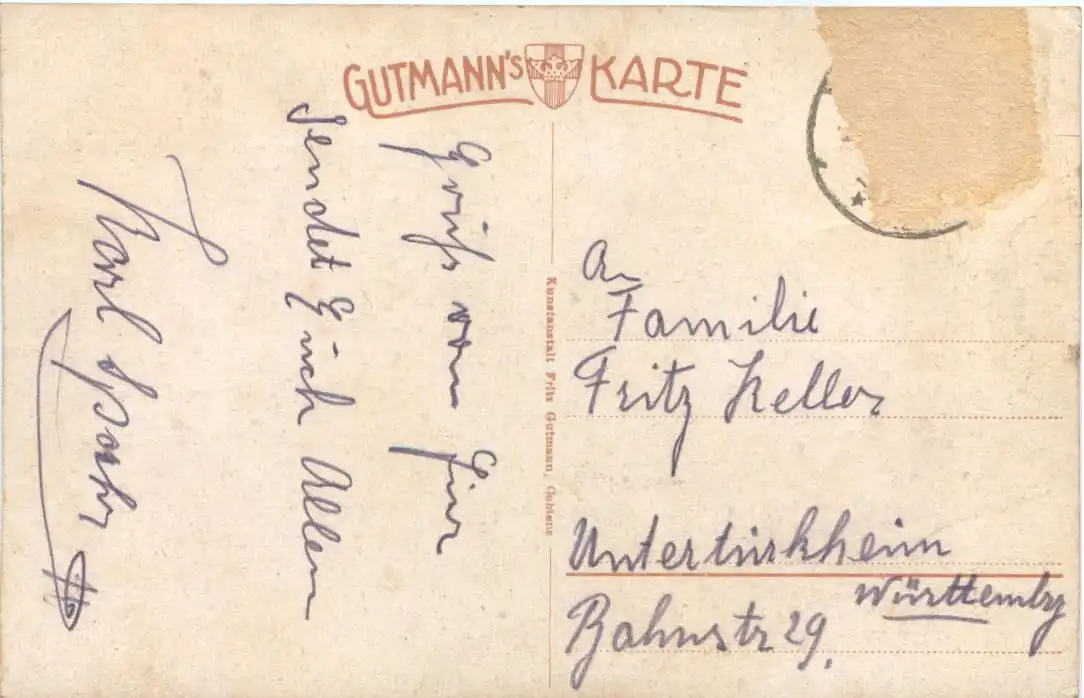 GUTMANN'S KARTE
Gruß vom
Sendet Euch Allen
Karl
Kunstanstalt Fritz Gutmann, Coblenz
An
Familie
Fritz Keller
Untertürkheim
Württembg
Bahnstr 29.